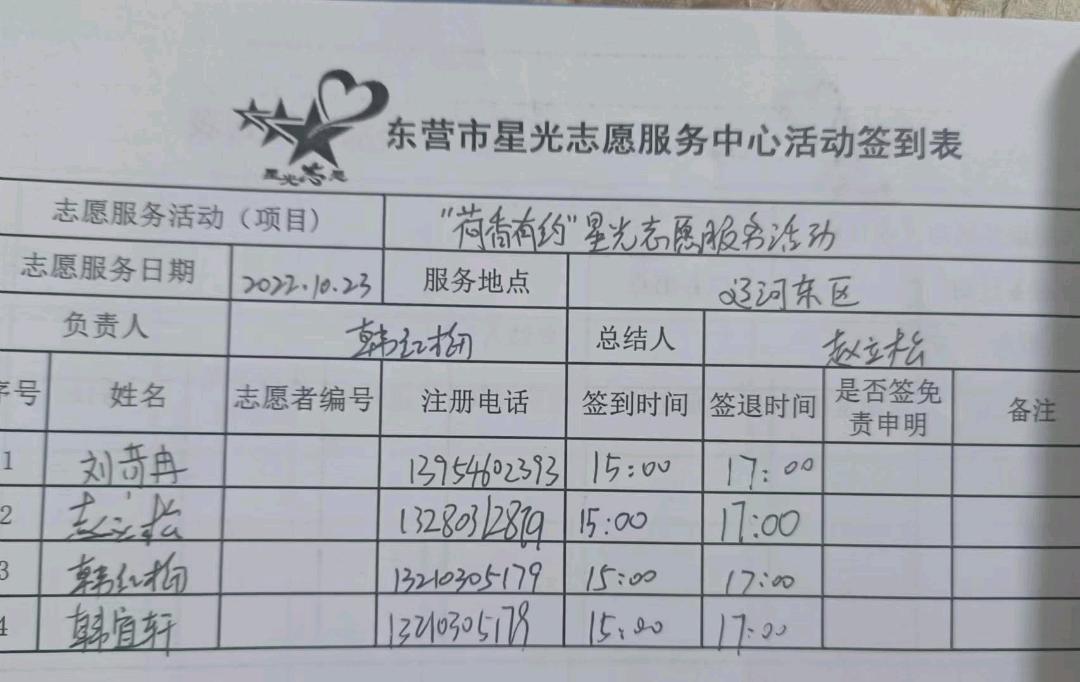 星光志愿
东营市星光志愿服务中心活动签到表
志愿服务活动（项目） “荷香有约”星光志愿服务活动
志愿服务日期 2022.10.23 服务地点 辽河东区
负责人 韩红梅 总结人 赵立松
序号 姓名 志愿者编号 注册电话 签到时间 签退时间 是否签免责申明 备注
1 刘奇冉 13954602393 15:00 17:00
2 赵立松 15:00 17:00
3 韩红梅 13210305179 15:00 17:00
4 韩宜轩 13210305178 15:00 17:00